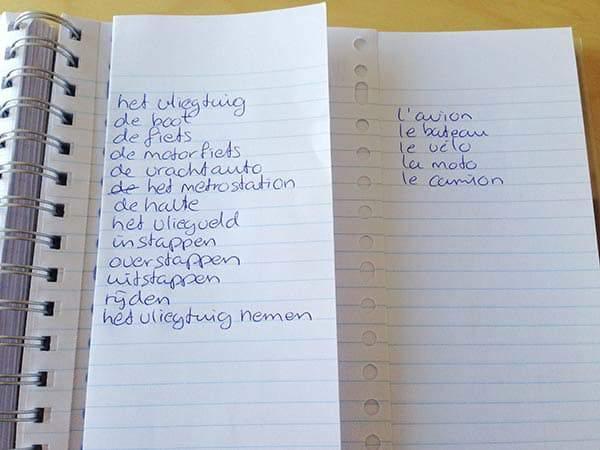 het vliegtuig
de boot
de fiets
de motorfiets
de vrachtauto
de het metrostation
de halte
het vliegveld
instappen
overstappen
uitstappen
rijden
het vliegtuig nemen
l'avion
le bateau
le vélo
la moto
le camion